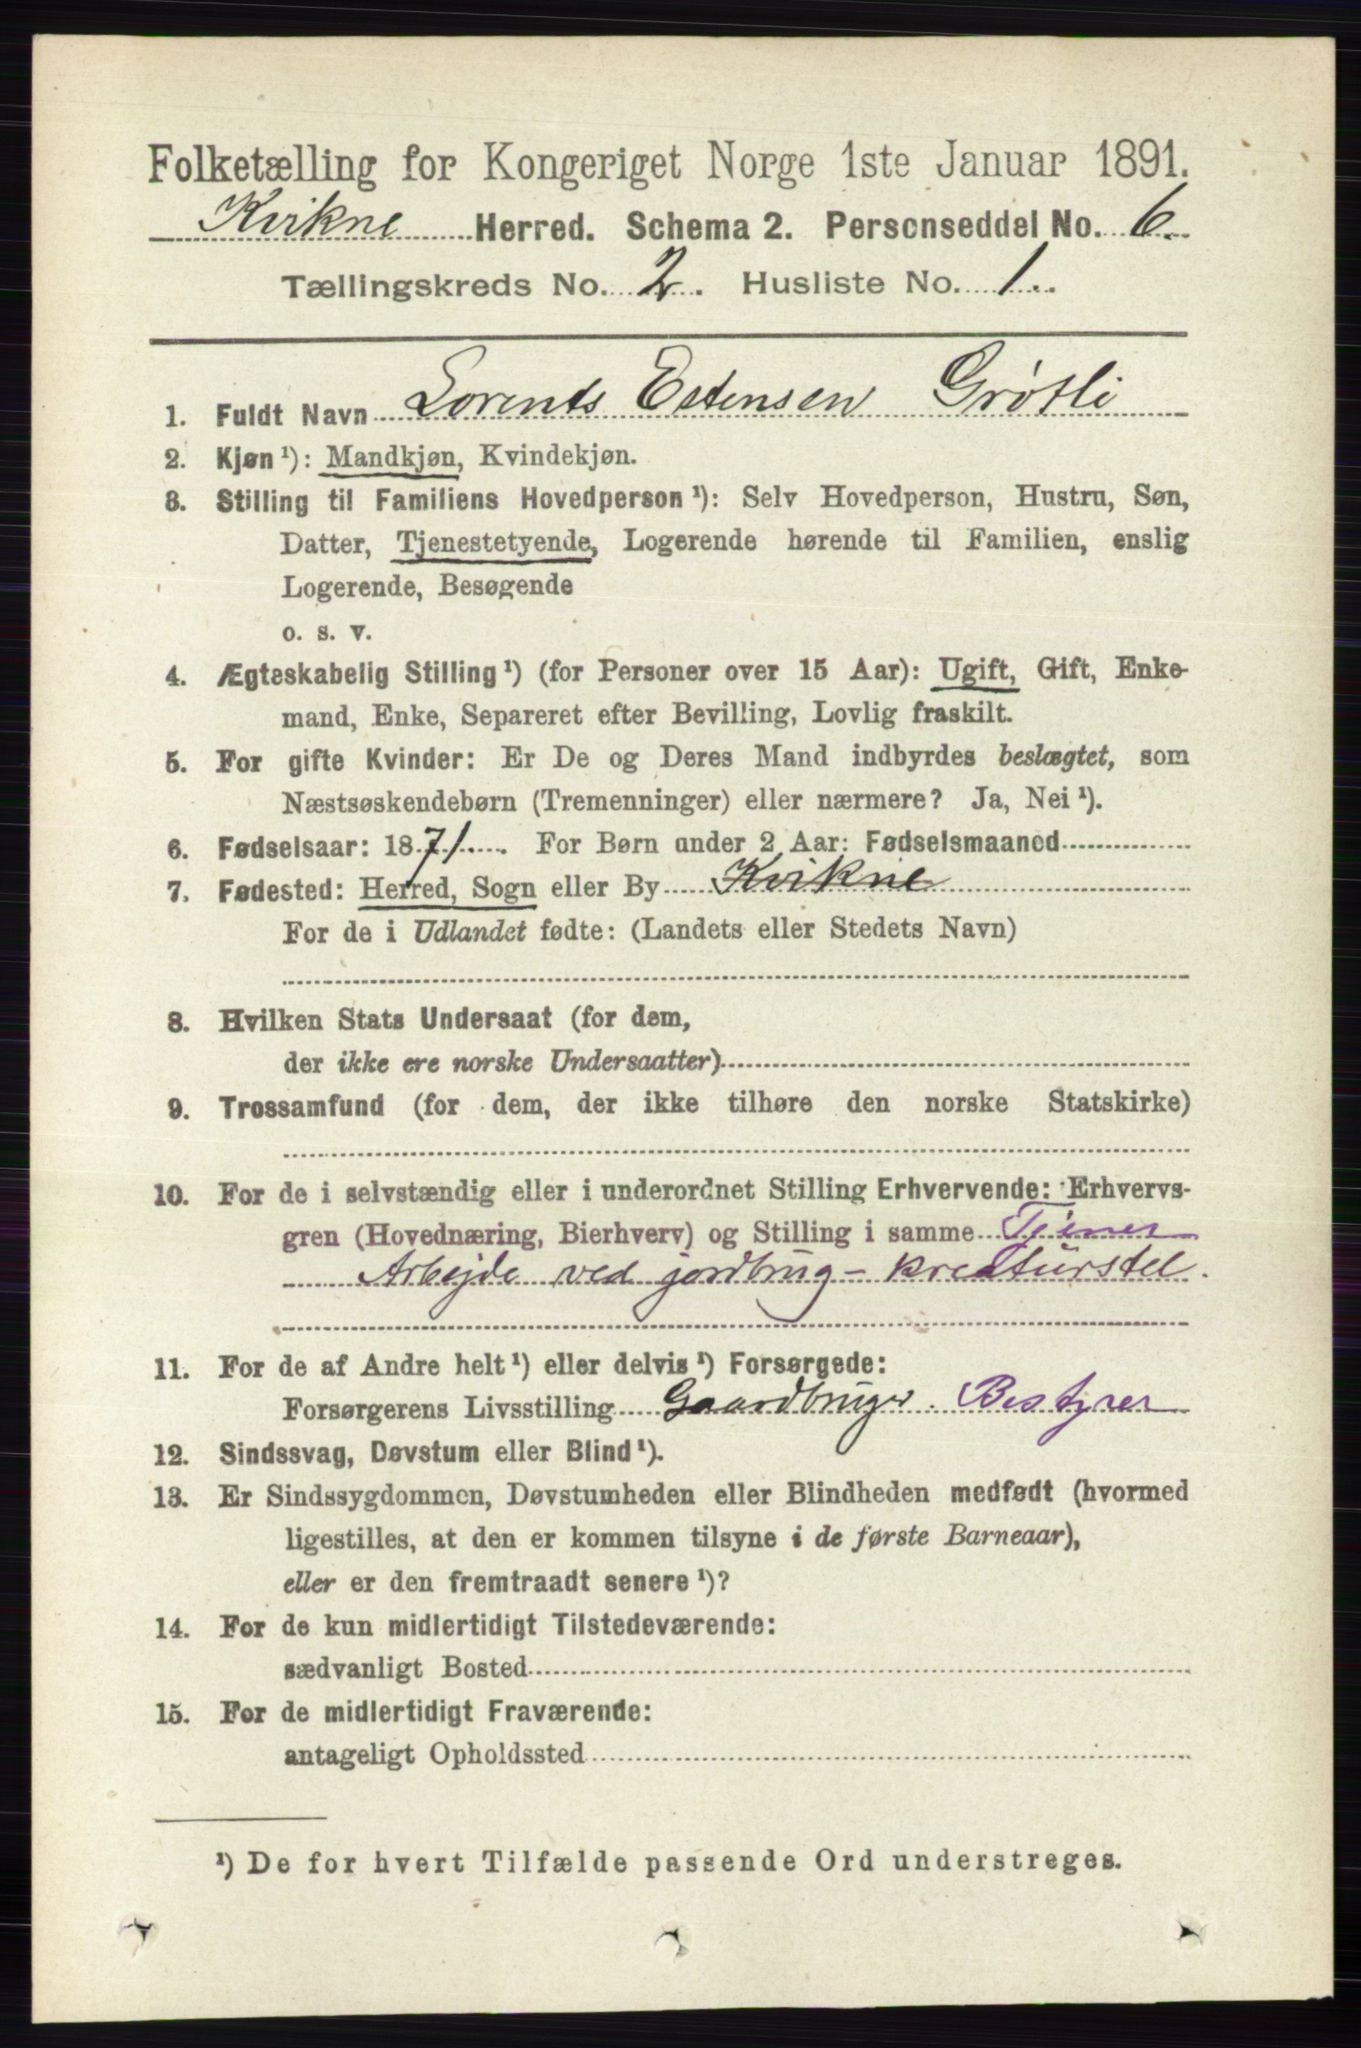 Folketælling for Kongeriget Norge 1ste Januar 1891.
Kvikne Herred. Schema 2. Personseddel No. 6.
Tællingskreds No. 2. Husliste No. 1.
1. Fuldt Navn Lorents Estensen Grøtli
2. Kjøn ¹): Mandkjøn, Kvindekjøn.
3. Stilling til Familiens Hovedperson ¹): Selv Hovedperson, Hustru, Søn,
Datter, Tjenestetyende, Logerende hørende til Familien, enslig
Logerende, Besøgende
o. s. v.
4. Ægteskabelig Stilling ¹) (for Personer over 15 Aar): Ugift, Gift, Enke-
mand, Enke, Separeret efter Bevilling, Lovlig fraskilt.
5. For gifte Kvinder: Er De og Deres Mand indbyrdes beslægtet, som
Næstsøskendebørn (Tremenninger) eller nærmere? Ja, Nei ¹).
6. Fødselsaar: 1871. For Børn under 2 Aar: Fødselsmaaned
7. Fødested: Herred, Sogn eller By Kvikne
For de i Udlandet fødte: (Landets eller Stedets Navn)
8. Hvilken Stats Undersaat (for dem,
der ikke ere norske Undersaatter)
9. Trossamfund (for dem, der ikke tilhøre den norske Statskirke)
10. For de i selvstændig eller i underordnet Stilling Erhvervende: Erhvervs-
gren (Hovednæring, Bierhverv) og Stilling i samme Tjener
Arbejde ved jordbrug - kreaturstel.
11. For de af Andre helt ¹) eller delvis ¹) Forsørgede:
Forsørgerens Livsstilling Gaardbruger. Bestyrer
12. Sindssvag, Døvstum eller Blind ¹).
13. Er Sindssygdommen, Døvstumheden eller Blindheden medfødt (hvormed
ligestilles, at den er kommen tilsyne i de første Barneaar),
eller er den fremtraadt senere ¹)?
14. For de kun midlertidigt Tilstedeværende:
sædvanligt Bosted
15. For de midlertidigt Fraværende:
antageligt Opholdssted
¹) De for hvert Tilfælde passende Ord understreges.